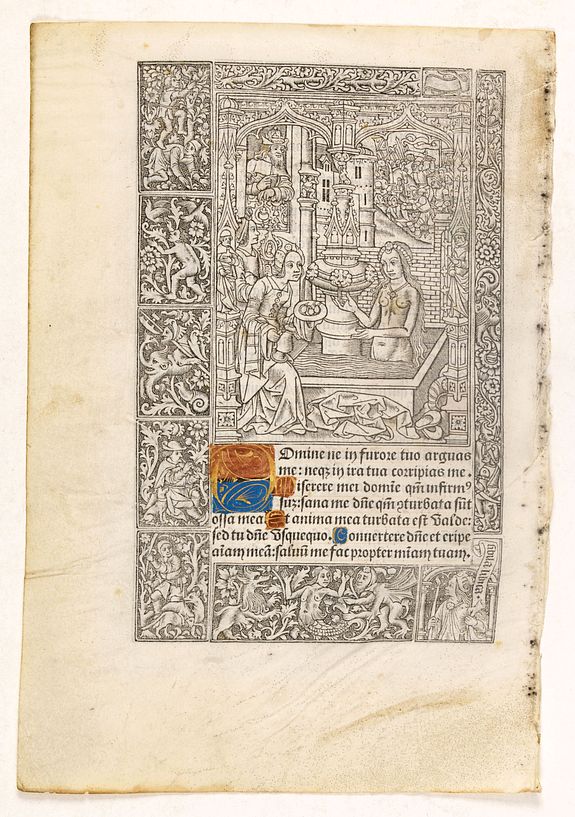 Domine ne in furore tuo arguas
me: neq3 in ira tua corripias me.
Miserere mei domīe qm̄ infirmꝰ
suʒ: sana me dn̄e qm̄ ꝯturbata sūt
ossa mea Et anima mea turbata est valde:
sed tu dn̄e vsquequo. Conuertere dn̄e et eripe
aīam meā: saluū me fac propter mīam tuam.